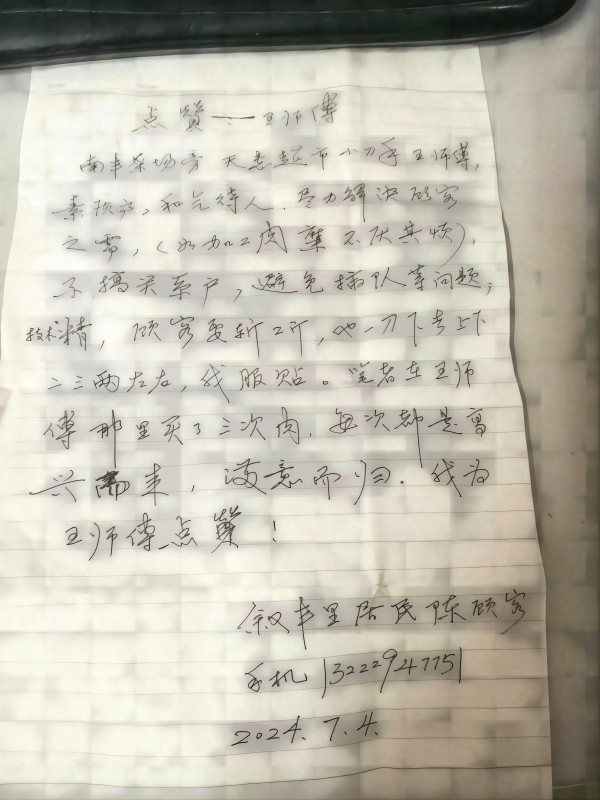 点赞——王师傅
南丰菜场旁天惠超市小刀手王师傅,
素质高,和气待人.尽力解决顾客
之需,(如加工肉糜不厌其烦),
不搞关系户,避免插队等问题,
技术精,顾客要斩2斤,他一刀下去上下
二三两左右,我服贴。笔者在王师
傅那里买了三次肉.每次都是高
兴而来,满意而归.我为
王师傅点赞!
叙丰里居民陈顾客
手机13222947751
2024.7.4.